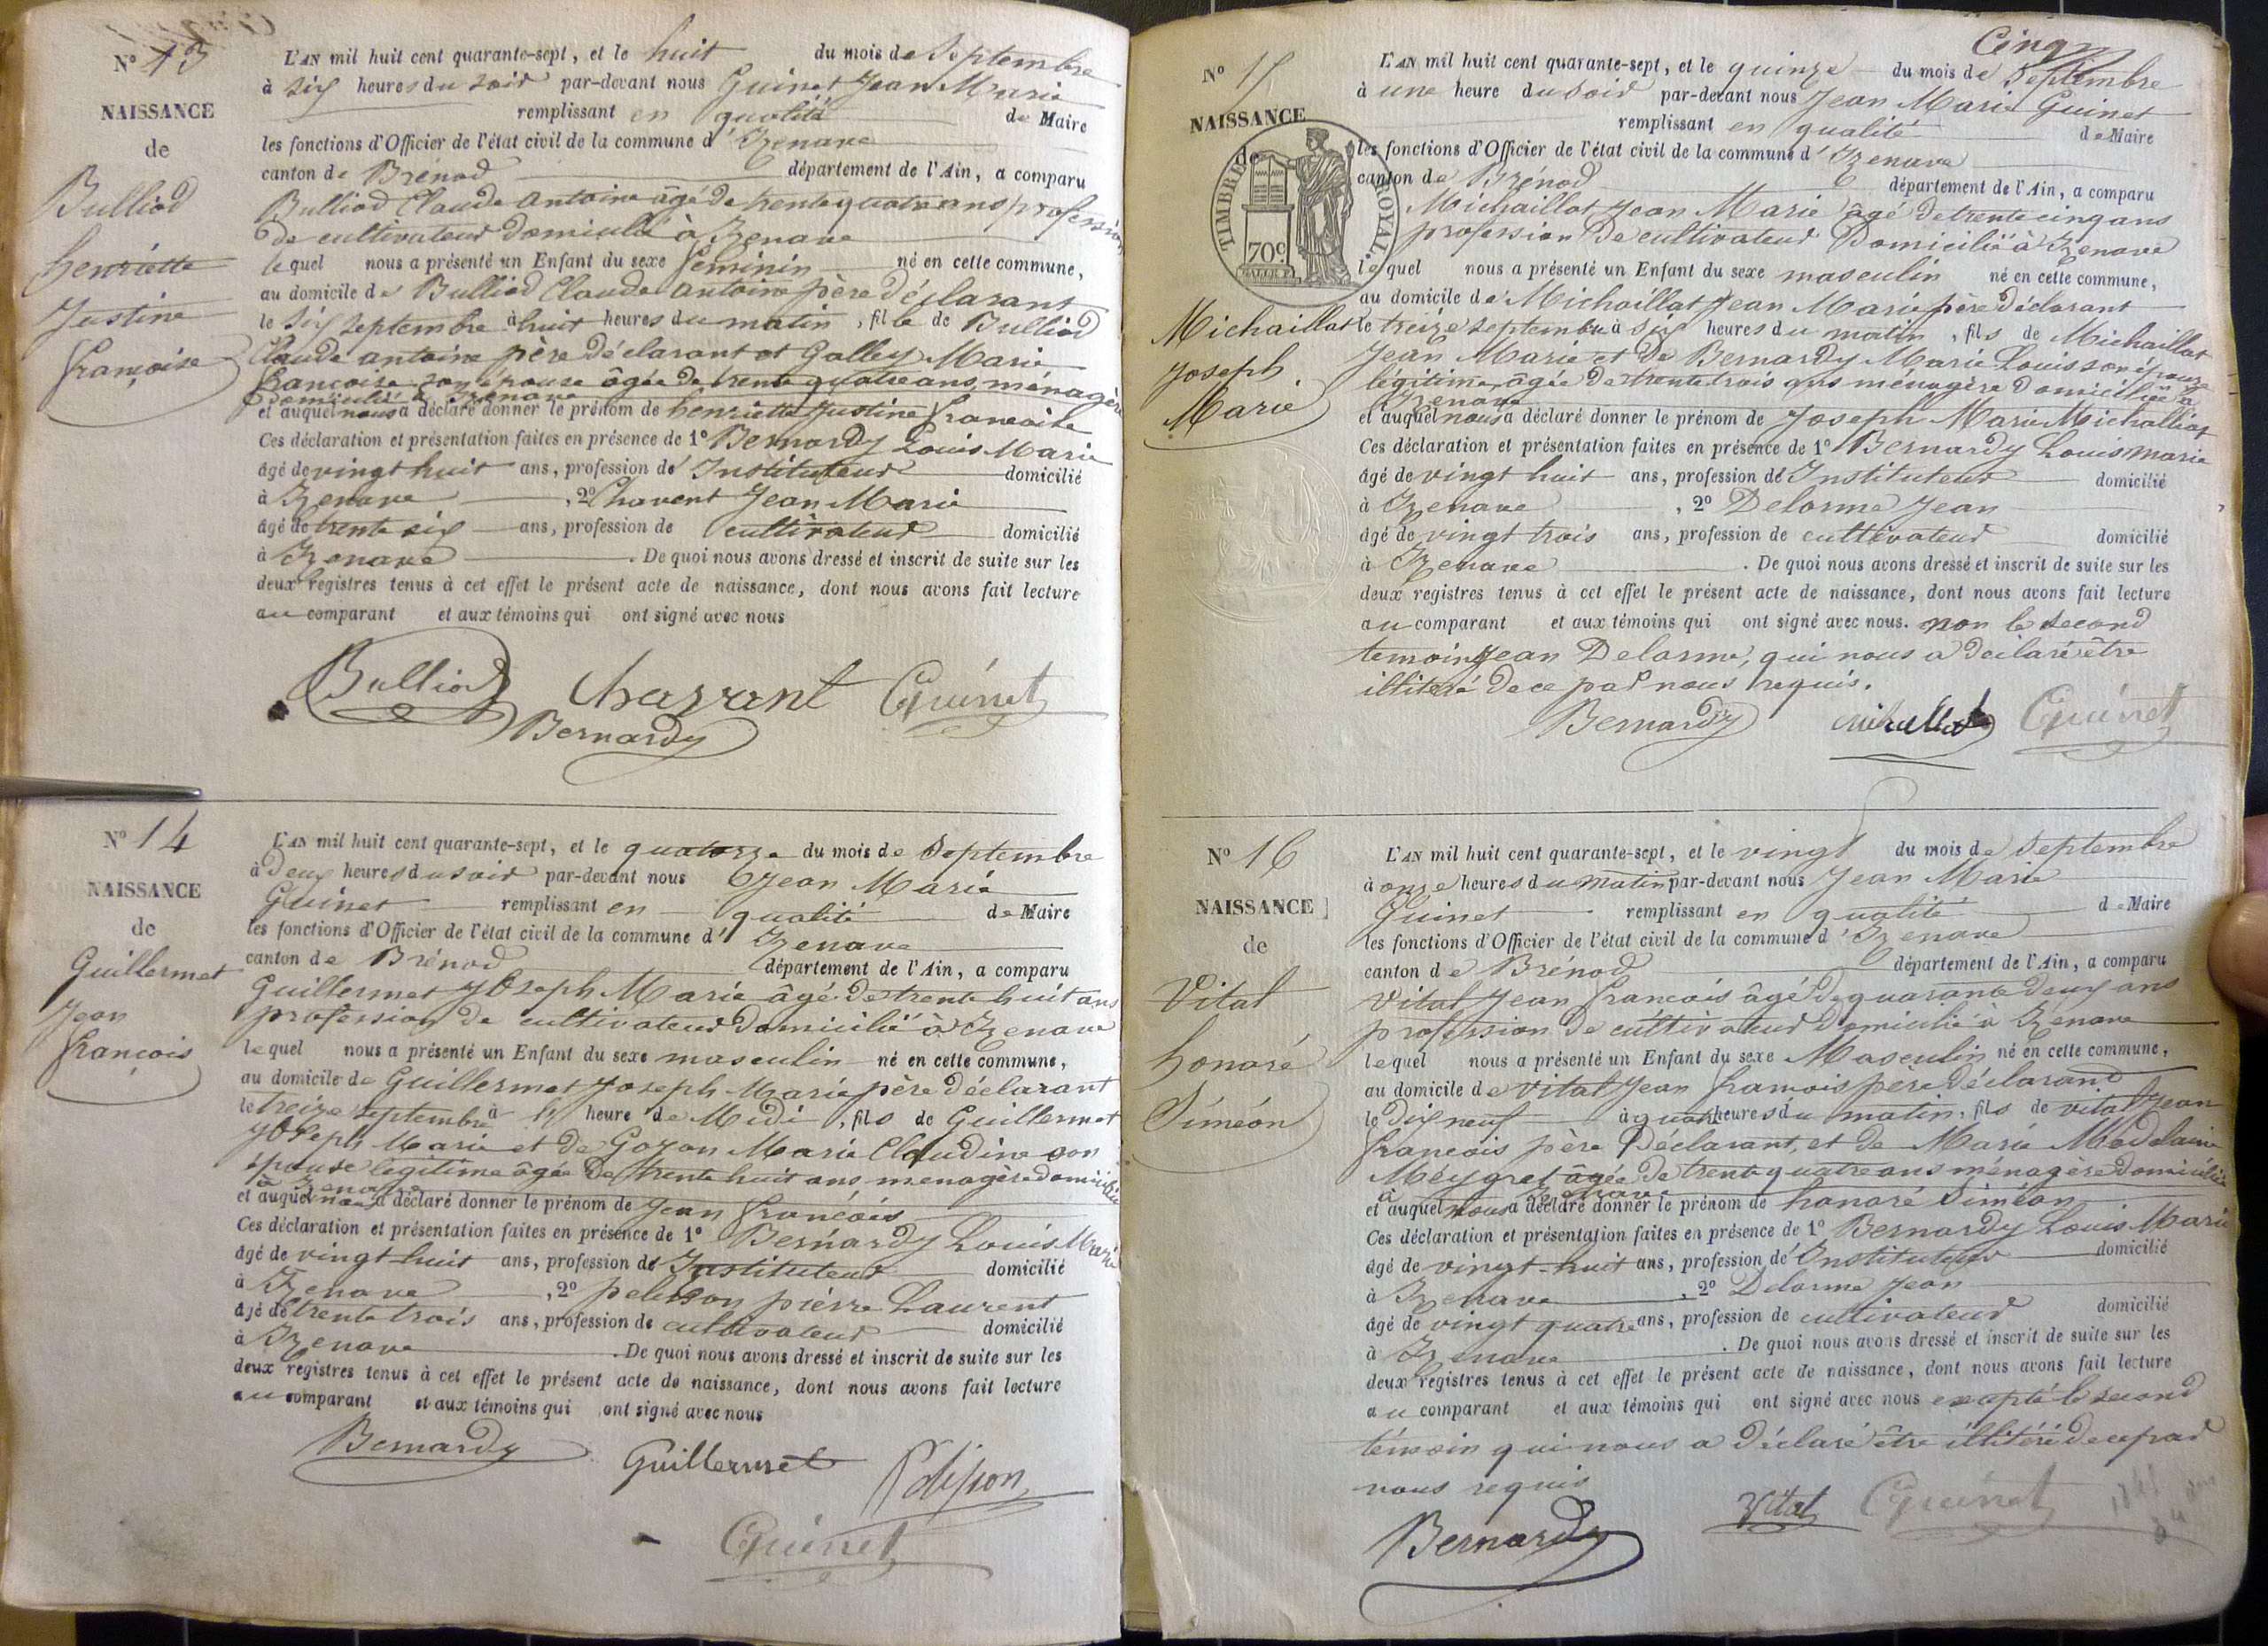 Nº 13
NAISSANCE
de
Bulliod
henriette
Justine
françoise
L'AN mil huit cent quarante-sept, et le huit du mois de Septembre
à six heures du soir par-devant nous Guinet Jean Marie
remplissant en qualité de Maire
les fonctions d'Officier de l'état civil de la commune d'Izenave
canton de Brénod département de l'Ain, a comparu
Bulliod Claude antoine âgé de trente quatre ans profession
de cultivateur domicilié à Izenave
lequel nous a présenté un Enfant du sexe feminin né en cette commune,
au domicile de Bulliod Claude antoine père déclarant
le six septembre à huit heures du matin, fille de Bulliod
Claude antoine père déclarant et Galley Marie
françoise son épouse âgée de trente quatre ans, ménagère
domiciliée à Izenave
et auquel nous a déclaré donner le prénom de henriette Justine francoise
Ces déclaration et présentation faites en présence de 1º Bernardy Louis Marie
âgé de vingt huit ans, profession de Instituteur domicilié
à Izenave, 2º Chavent Jean Marie
âgé de trente six ans, profession de cultivateur domicilié
à Izenave. De quoi nous avons dressé et inscrit de suite sur les
deux registres tenus à cet effet le présent acte de naissance, dont nous avons fait lecture
au comparant et aux témoins qui ont signé avec nous
Bulliod Charvant Guinet
Bernardy
Nº 14
NAISSANCE
de
Guillermet
Jean
françois
L'AN mil huit cent quarante-sept, et le quatorze du mois de Septembre
à deux heures du soir par-devant nous Jean Marie
Guinet remplissant en qualité de Maire
les fonctions d'Officier de l'état civil de la commune d'Izenave
canton de Brénod département de l'Ain, a comparu
Guillermet Joseph Marie âgé de trente huit ans
profession de cultivateur domicilié à Izenave
lequel nous a présenté un Enfant du sexe masculin né en cette commune,
au domicile de Guillermet Joseph Marie père déclarant
le treize septembre à heure de Midi, fils de Guillermet
Joseph Marie et de Goyon Marie Claudine son
épouse légitime âgée de trente huit ans, menagère domiciliée
à Izenave
et auquel nous a déclaré donner le prénom de Jean françois
Ces déclaration et présentation faites en présence de 1º Bernardy Louis Marie
âgé de vingt huit ans, profession de Instituteur domicilié
à Izenave, 2º pelisson pierre Laurent
âgé de trente trois ans, profession de cultivateur domicilié
à Izenave. De quoi nous avons dressé et inscrit de suite sur les
deux registres tenus à cet effet le présent acte de naissance, dont nous avons fait lecture
au comparant et aux témoins qui ont signé avec nous
Bernardy Guillermet Pelisson
Guinet
Cinq
Nº 15
NAISSANCE
de
TIMBRE ROYAL.
70c
Michaillat
Joseph
Marie
L'AN mil huit cent quarante-sept, et le quinze du mois de Septembre
à une heure du soir par-devant nous Jean Marie Guinet
remplissant en qualité de Maire
les fonctions d'Officier de l'état civil de la commune d'Izenave
canton de Brénod département de l'Ain, a comparu
Michaillat Jean Marie âgé de trente cinq ans
profession de cultivateur domicilié à Izenave
lequel nous a présenté un Enfant du sexe masculin né en cette commune,
au domicile de Michaillat Jean Marie père déclarant
le treize septembre à six heures du matin, fils de Michaillat
Jean Marie et de Bernardy Marie Louis son épouse
légitime, âgée de trente trois ans ménagère domiciliée à
Izenave
et auquel nous a déclaré donner le prénom de Joseph Marie Michalliat
Ces déclaration et présentation faites en présence de 1º Bernardy Louis marie
âgé de vingt huit ans, profession de Instituteur domicilié
à Izenave, 2º Delorme Jean
âgé de vingt trois ans, profession de cultivateur domicilié
à Izenave. De quoi nous avons dressé et inscrit de suite sur les
deux registres tenus à cet effet le présent acte de naissance, dont nous avons fait lecture
au comparant et aux témoins qui ont signé avec nous. non le second
temoins Jean Delorme, qui nous a déclaré être
illitéré de ce par nous requis.
Bernardy Guinet
Nº 16
NAISSANCE
de
Vital
honoré
Siméon
L'AN mil huit cent quarante-sept, et le vingt du mois de Septembre
à onze heures du matin par-devant nous Jean Marie
Guinet remplissant en qualité de Maire
les fonctions d'Officier de l'état civil de la commune d'Izenave
canton de Brénod département de l'Ain, a comparu
Vital Jean francois âgé de quarante deux ans
profession de cultivateur domicilié à Izenave
lequel nous a présenté un Enfant du sexe Masculin né en cette commune,
au domicile de vital Jean francois père déclarant
le dix neuf à quatre heures du matin, fils de vital Jean
francois père déclarant, et de Marie Madelaine
Meygret âgée de trente quatre ans ménagère domiciliée
à Izenave
et auquel nous a déclaré donner le prénom de honoré Siméon
Ces déclaration et présentation faites en présence de 1º Bernardy Louis Marie
âgé de vingt-huit ans, profession de Instituteur domicilié
à Izenave, 2º Delorme Jean
âgé de vingt quatre ans, profession de cultivateur domicilié
à Izenave. De quoi nous avons dressé et inscrit de suite sur les
deux registres tenus à cet effet le présent acte de naissance, dont nous avons fait lecture
au comparant et aux témoins qui ont signé avec nous excepté le second
témoin qui nous a déclaré être illitéré de ce par
nous requis
Bernardy Vital Guinet